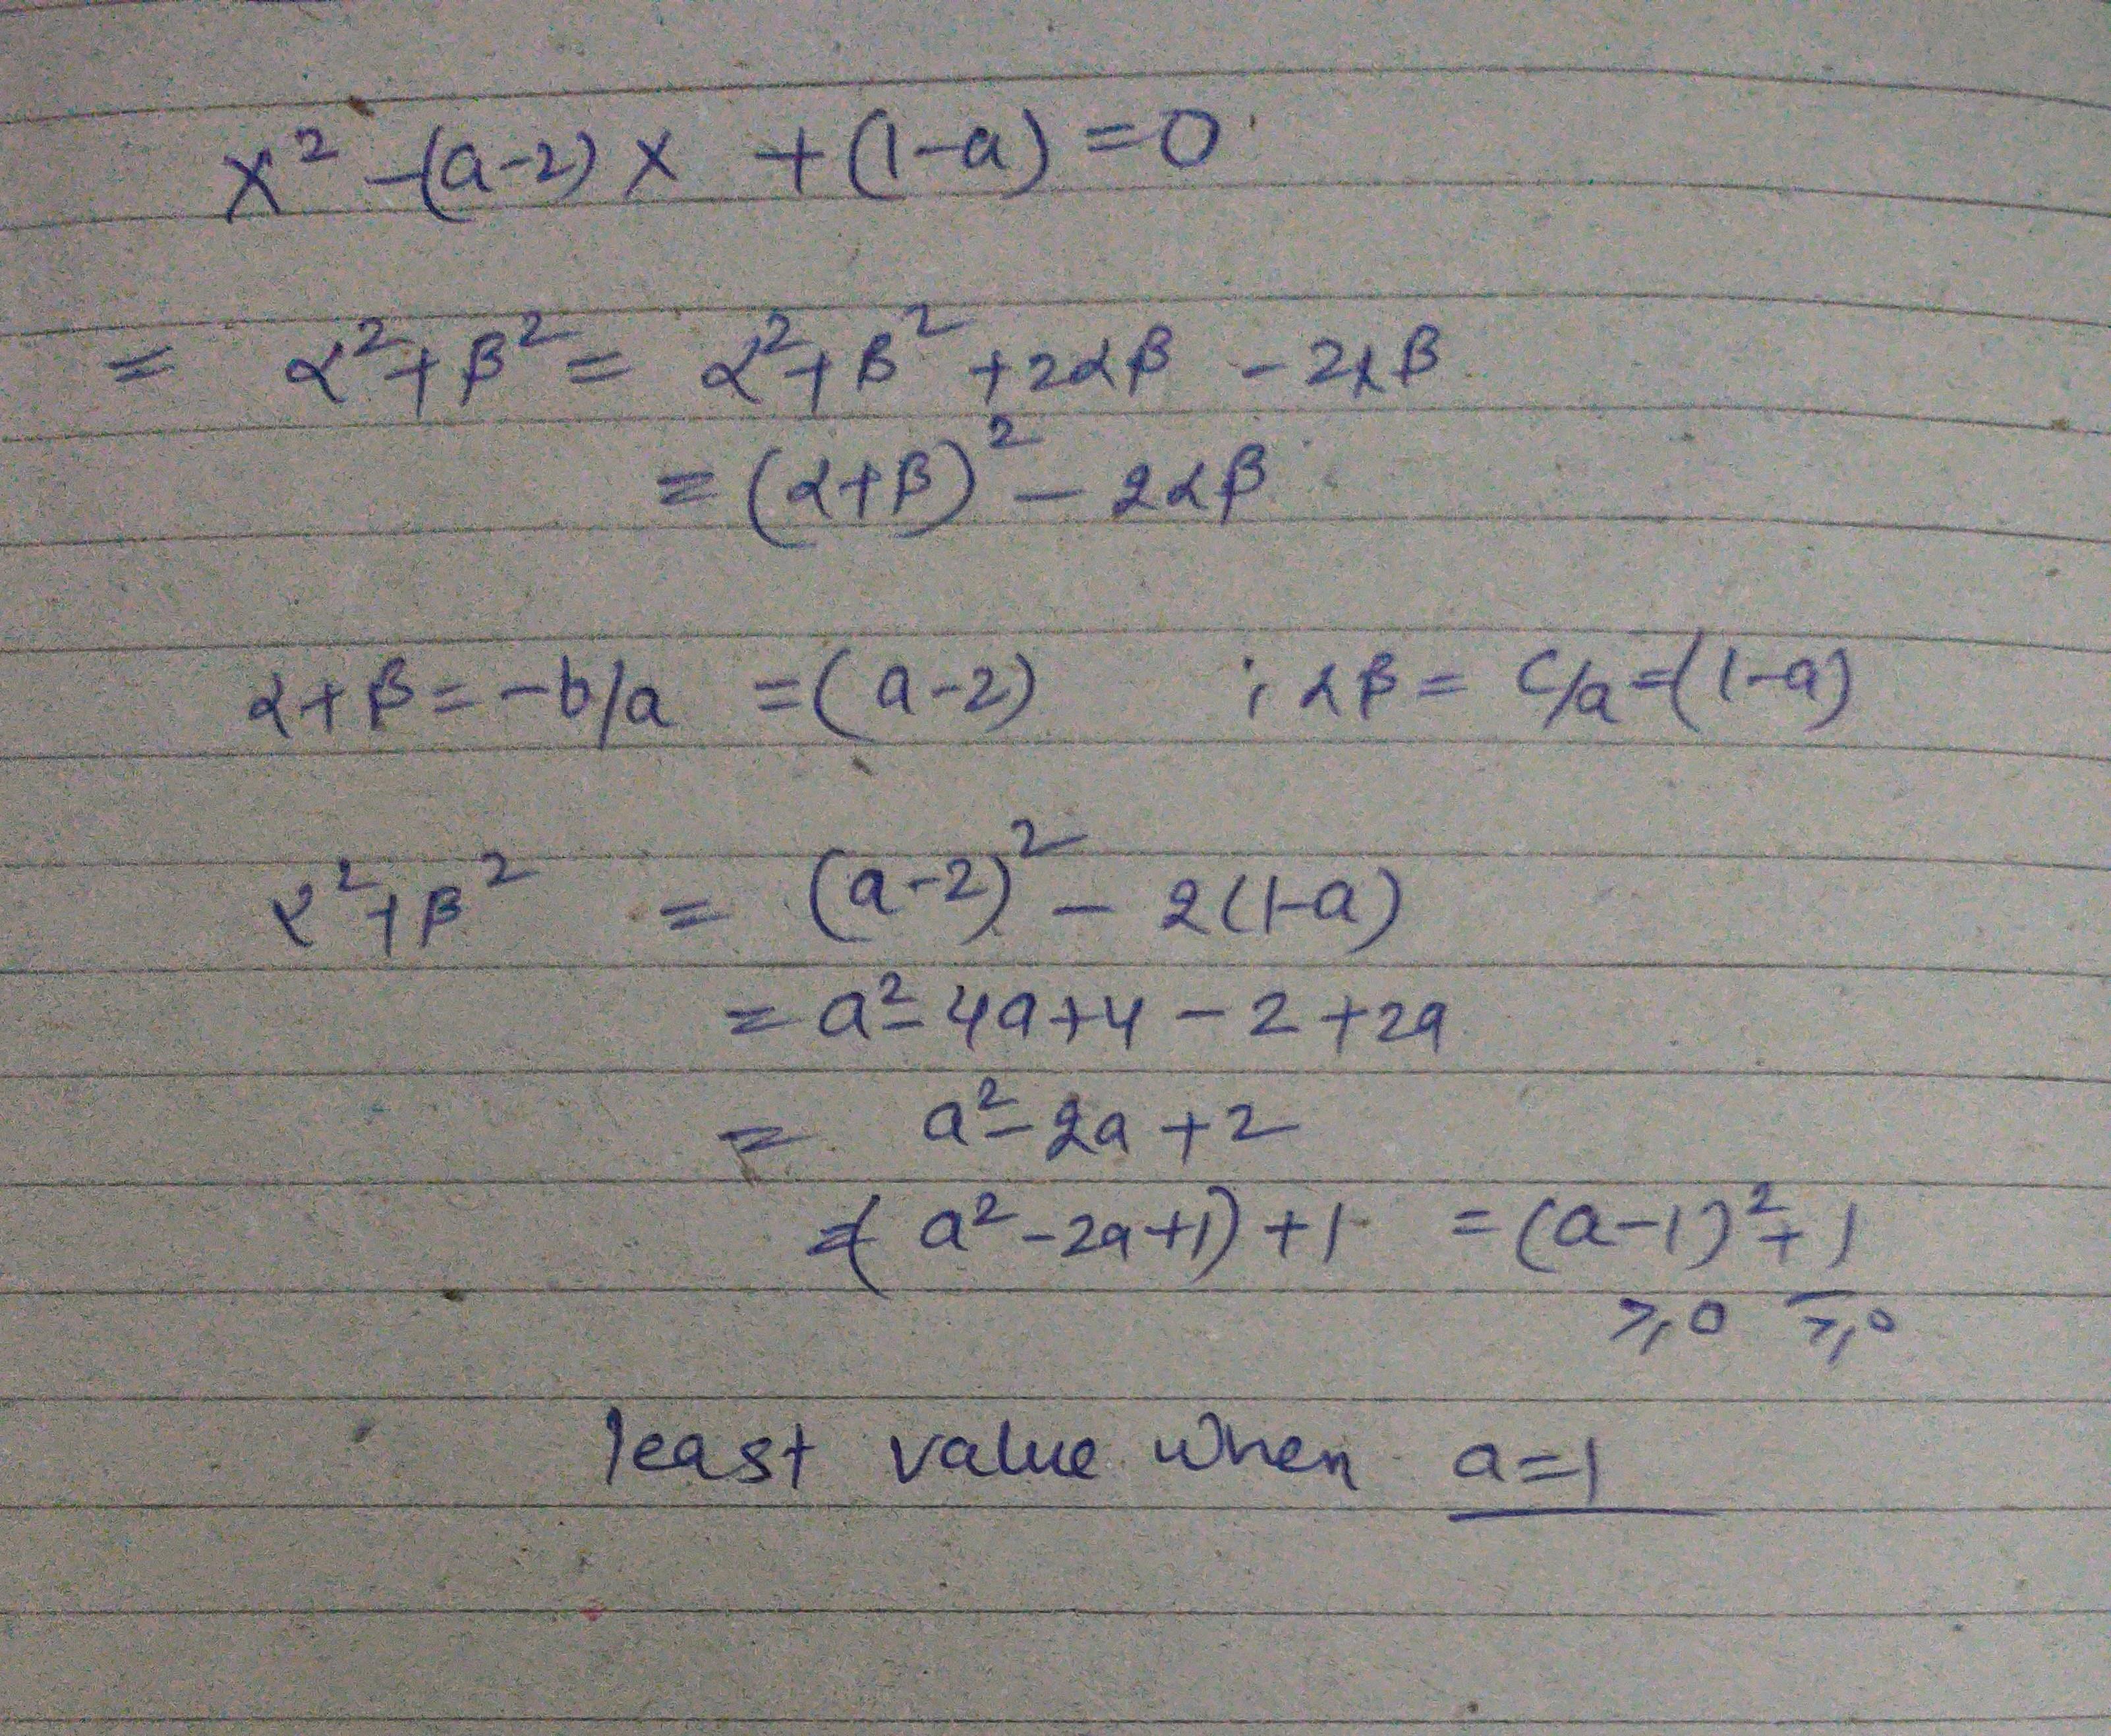 x² -(a-2) x + (1-a) = 0
= α²+β² = α²+β² +2αβ - 2αβ
= (α+β)² - 2αβ
α+β = -b/a = (a-2) ; αβ = c/a = (1-a)
α²+β² = (a-2)² - 2(1-a)
= a² - 4a+4 - 2 + 2a
= a² - 2a + 2
= (a² - 2a+1) + 1 = (a-1)² + 1
≥0 ≥0
least value when a=1